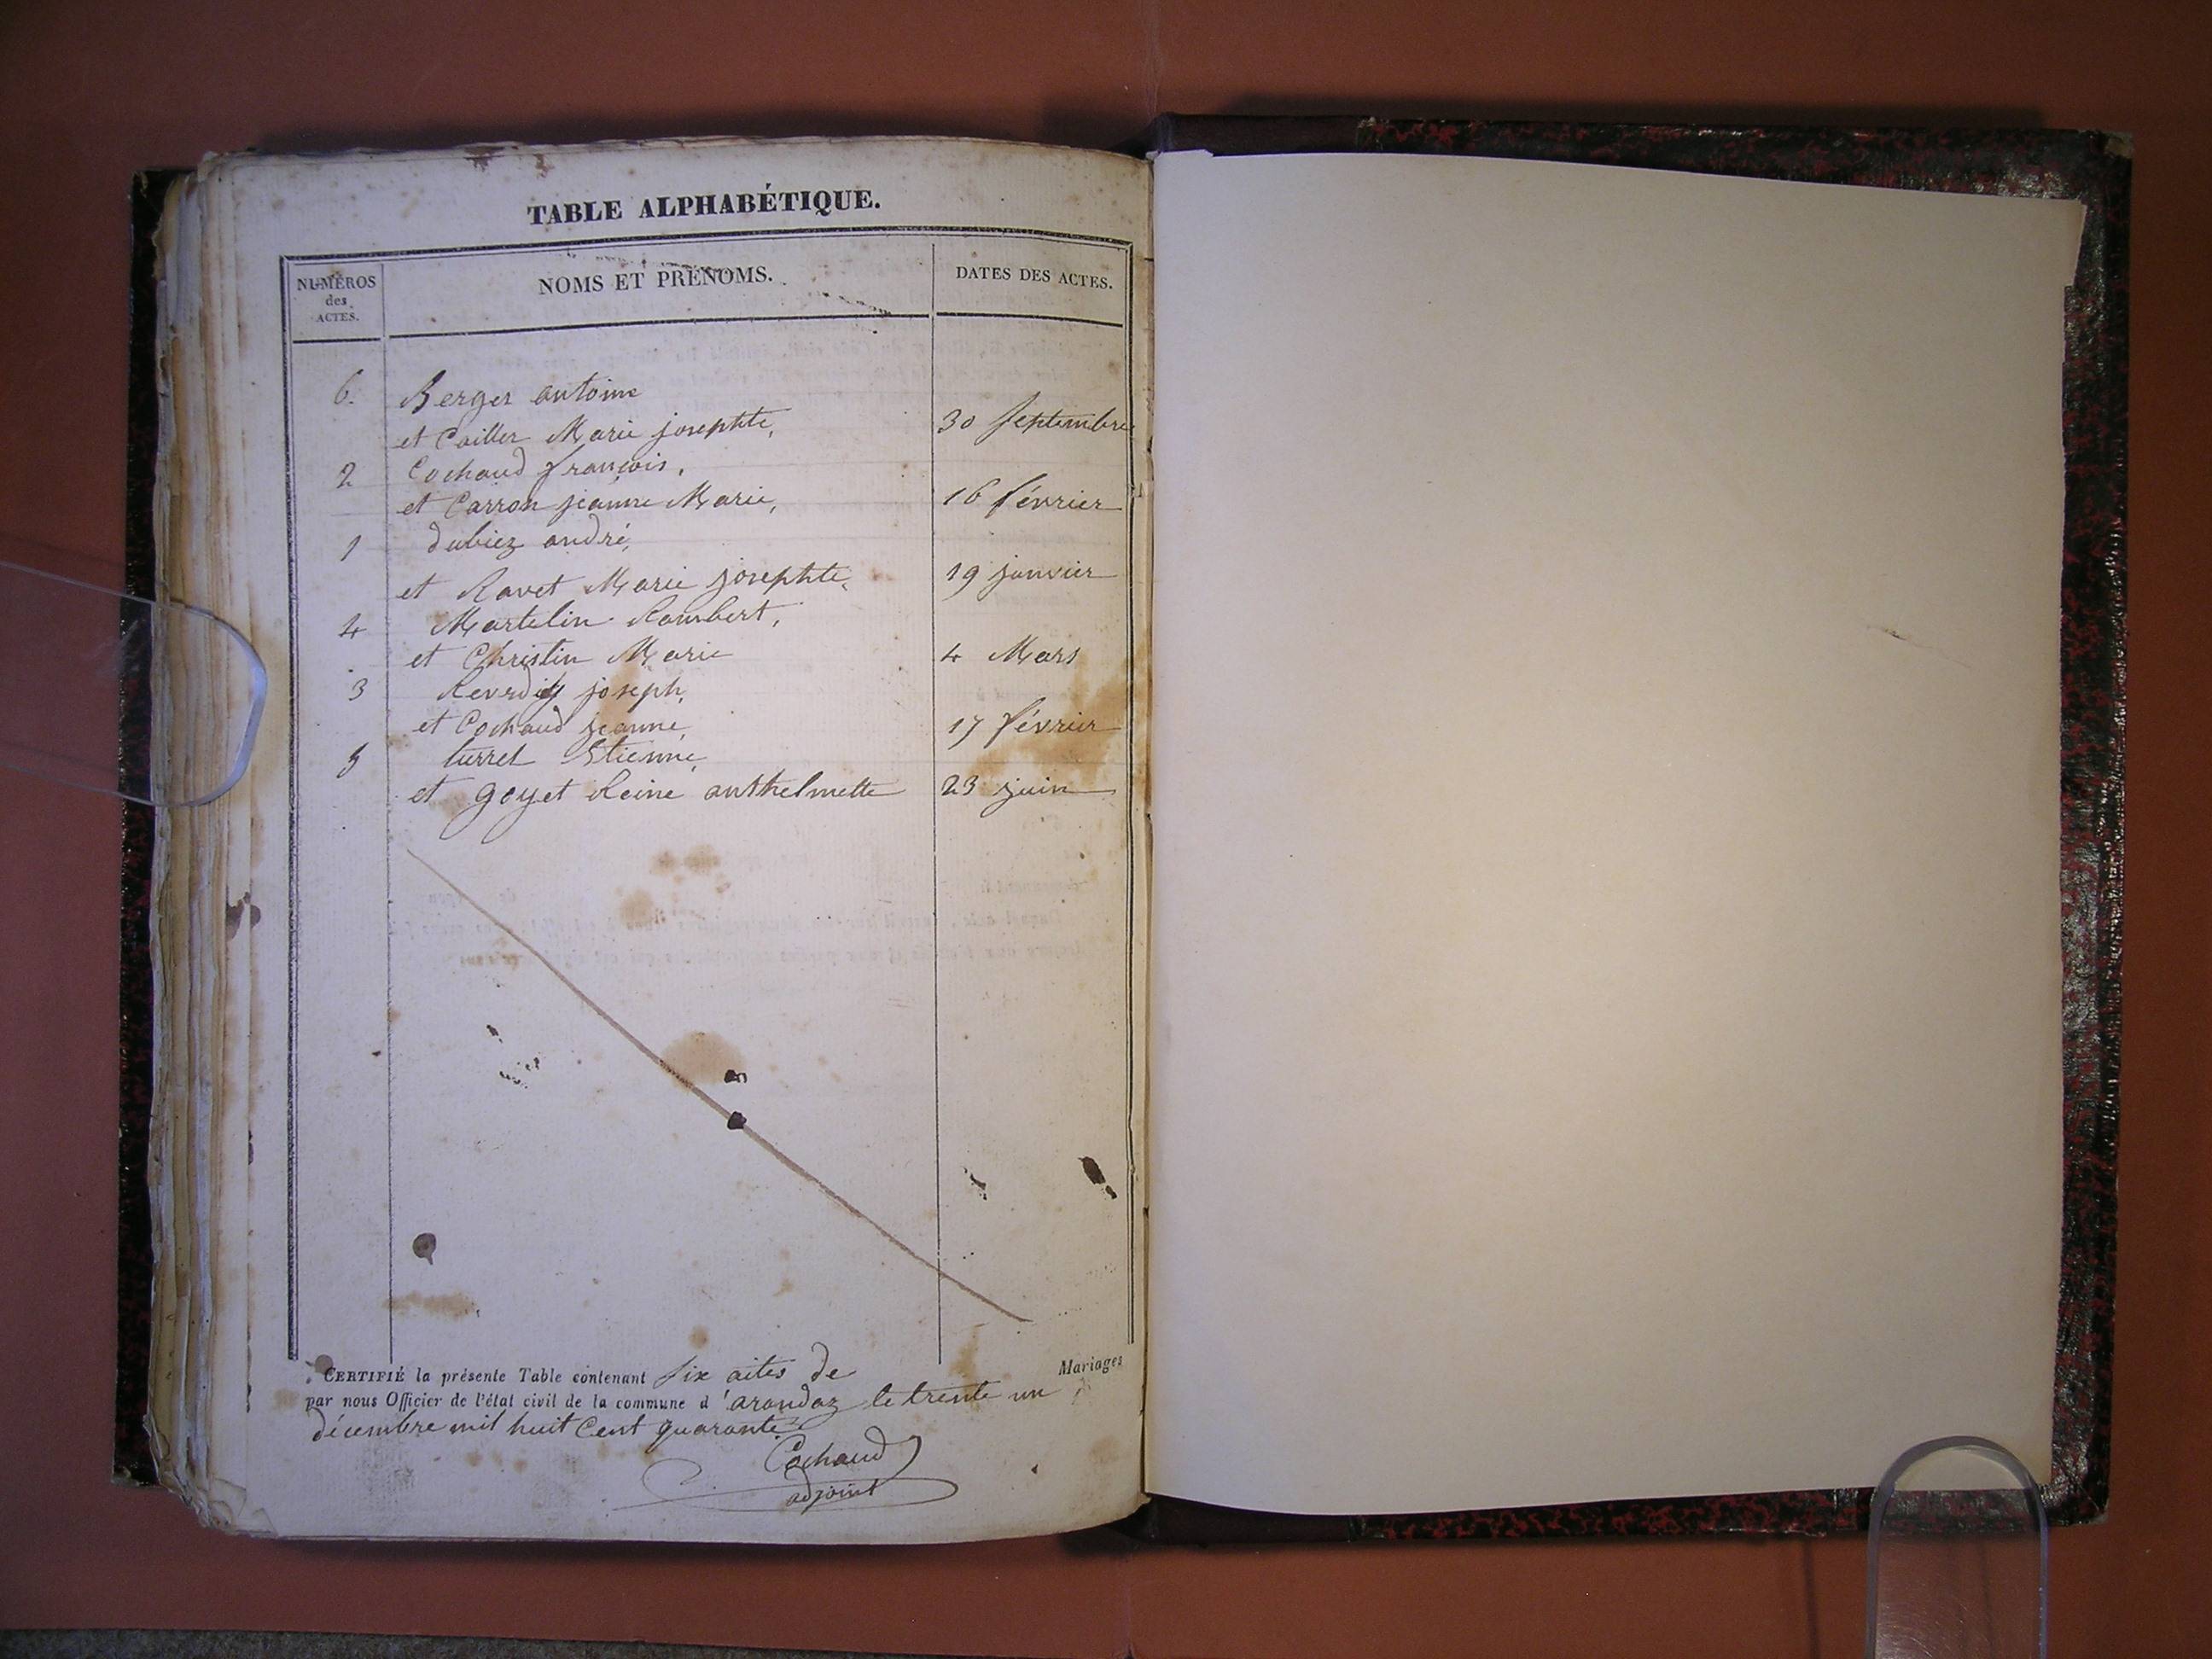 TABLE ALPHABÉTIQUE.
NUMÉROS des ACTES. NOMS ET PRÉNOMS. DATES DES ACTES.
6. Berger antoine
et Cailler Marie josephte, 30 Septembre
2 Cochaud françois,
et Carron jeanne Marie, 16 février
1 dubiez andré,
et Ravet Marie josephte, 19 janvier
4 Martelin Rambert,
et Christin Marie 4 Mars
3 Reverdy joseph,
et Cochaud jeanne, 17 février
5 turrel Etienne,
et goyet Reine anthelmette 23 juin
CERTIFIÉ la présente Table contenant Six actes de Mariages
par nous Officier de l'état civil de la commune d'arandaz le trente un
décembre mil huit Cent quarante.
Cochaud
adjoint